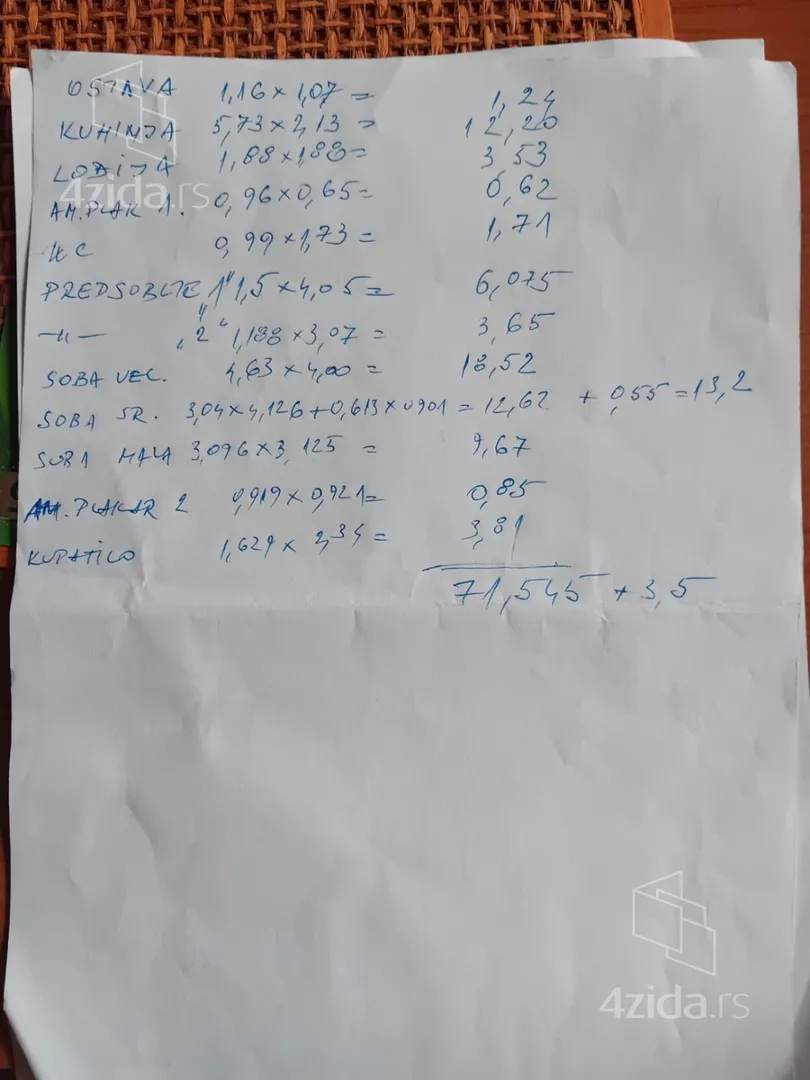 OSTAVA 1,16 × 1,07 = 1,24
KUHINJA 5,73 × 2,13 = 12,20
LOĐIJA 1,88 × 1,88 = 3,53
AM.PLAK 1. 0,96 × 0,65 = 0,62
WC 0,99 × 1,73 = 1,71
PREDSOBLJE "1" 1,5 × 4,05 = 6,075
—"— "2" 1,188 × 3,07 = 3,65
SOBA VEL. 4,63 × 4,00 = 18,52
SOBA SR. 3,04 × 4,126 + 0,613 × 0901 = 12,62 + 0,55 = 13,2
SOBA MALA 3,096 × 3,125 = 9,67
AM.PLAKAR 2 0,919 × 0,921 = 0,85
KUPATILO 1,629 × 2,34 = 3,81
71,545 + 3,5
4zida.rs
4zida.rs